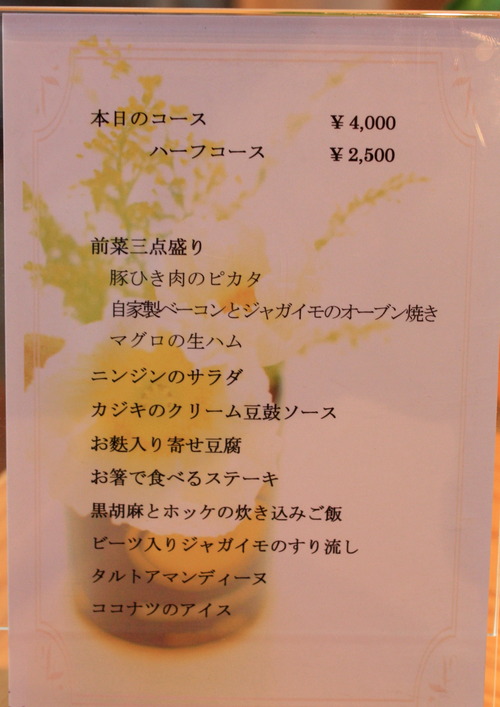 本日のコース ¥4,000
ハーフコース ¥2,500
前菜三点盛り
豚ひき肉のピカタ
自家製ベーコンとジャガイモのオーブン焼き
マグロの生ハム
ニンジンのサラダ
カジキのクリーム豆鼓ソース
お麩入り寄せ豆腐
お箸で食べるステーキ
黒胡麻とホッケの炊き込みご飯
ビーツ入りジャガイモのすり流し
タルトアマンディーヌ
ココナツのアイス